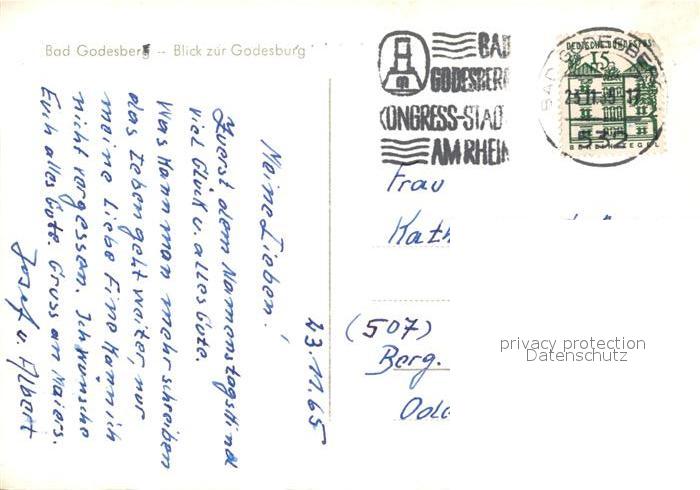 Bad Godesberg -- Blick zur Godesburg
23.11.65
Meine Lieben!
Zuerst dem Namenstagskind
viel Glück u. alles Gute.
Was kann man mehr schreiben
das Leben geht weiter, nur
meine Liebe Fine kann ich
nicht vergessen. Ich wünsche
Euch alles Gute. Gruss an Maiers.
Josef u. Albert
BAD
GODESBERG
KONGRESS-STAD
AM RHEIN
BAD GODESBERG
23.11.65-17
532
DEUTSCHE BUNDESPOST
15
BERLIN TEGEL
Frau
Kath
(507)
Berg.
Ode
privacy protection
Datenschutz